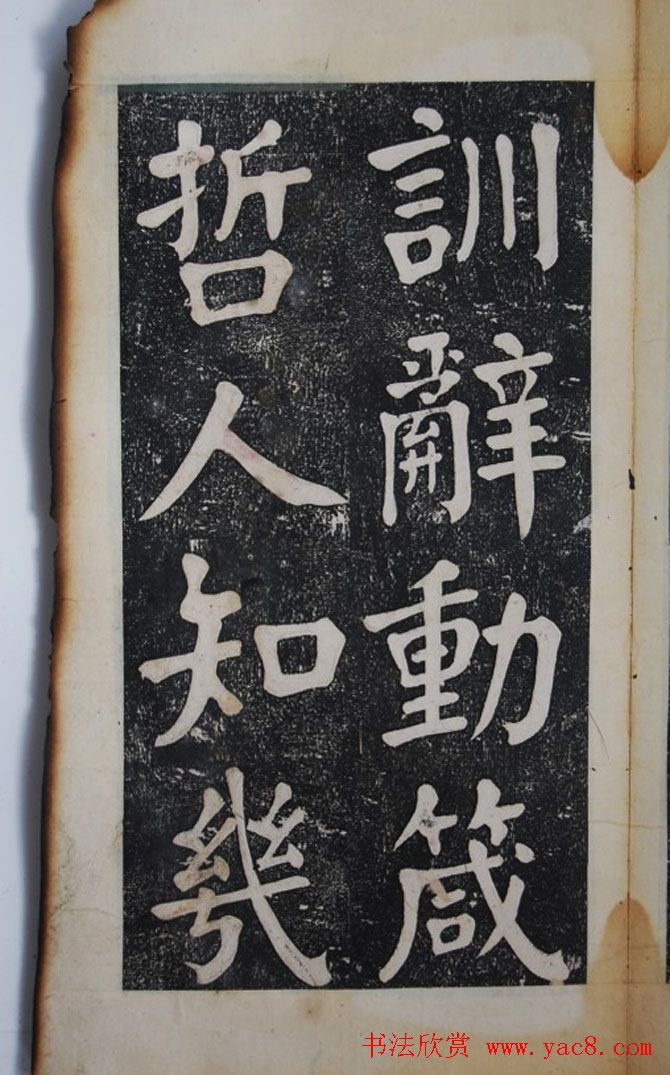 訓辭動箴
哲人知幾
书法欣赏 www.yac8.com